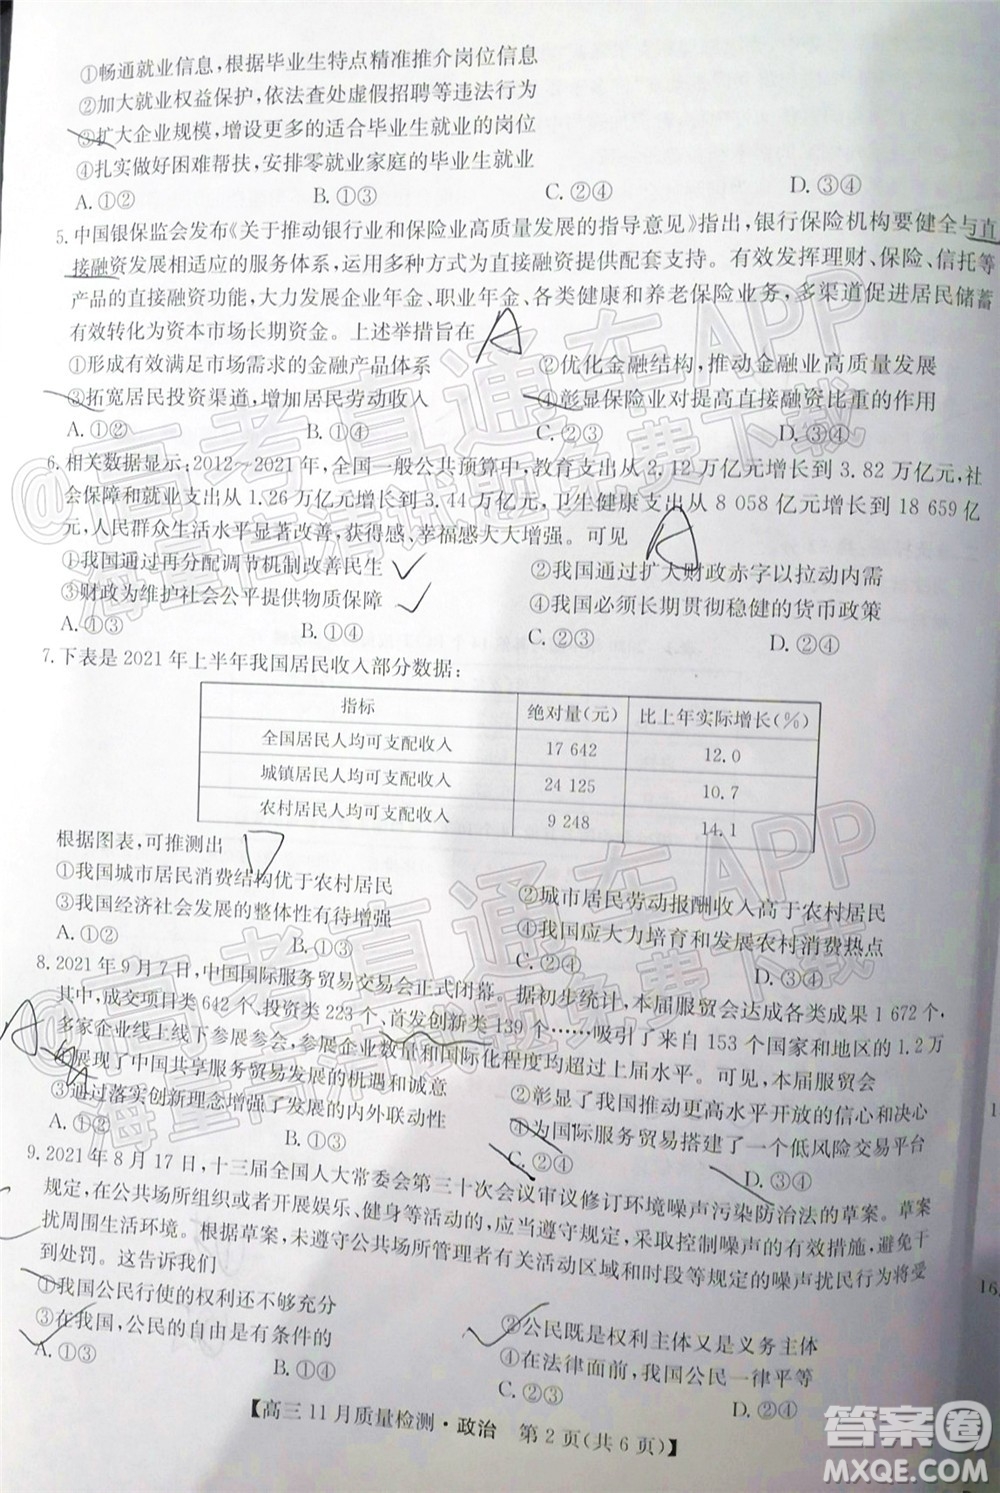 ①畅通就业信息,根据毕业生特点精准推介岗位信息
②加大就业权益保护,依法查处虚假招聘等违法行为
③扩大企业规模,增设更多的适合毕业生就业的岗位
④扎实做好困难帮扶,安排零就业家庭的毕业生就业
A.①② B.①③ C.②④ D.③④
5.中国银保监会发布《关于推动银行业和保险业高质量发展的指导意见》指出,银行保险机构要健全与直
接融资发展相适应的服务体系,运用多种方式为直接融资提供配套支持。有效发挥理财、保险、信托等
产品的直接融资功能,大力发展企业年金、职业年金、各类健康和养老保险业务,多渠道促进居民储蓄
有效转化为资本市场长期资金。上述举措旨在 A
①形成有效满足市场需求的金融产品体系 ②优化金融结构,推动金融业高质量发展
③拓宽居民投资渠道,增加居民劳动收入 ④彰显保险业对提高直接融资比重的作用
A.①② B.①④ C.②③ D.③④
6.相关数据显示:2012~2021年,全国一般公共预算中,教育支出从2.12万亿元增长到3.82万亿元,社
会保障和就业支出从1.26万亿元增长到3.44万亿元,卫生健康支出从8 058亿元增长到18 659亿
元,人民群众生活水平显著改善,获得感、幸福感大大增强。可见 A
①我国通过再分配调节机制改善民生 ②我国通过扩大财政赤字以拉动内需
③财政为维护社会公平提供物质保障 ④我国必须长期贯彻稳健的货币政策
A.①③ B.①④ C.②③ D.②④
7.下表是2021年上半年我国居民收入部分数据:
指标 绝对量(元) 比上年实际增长(%)
全国居民人均可支配收入 17 642 12.0
城镇居民人均可支配收入 24 125 10.7
农村居民人均可支配收入 9 248 14.1
根据图表,可推测出 D
①我国城市居民消费结构优于农村居民 ②城市居民劳动报酬收入高于农村居民
③我国经济社会发展的整体性有待增强 ④我国应大力培育和发展农村消费热点
A.①② B.①③ C.②④ D.③④
8.2021年9月7日,中国国际服务贸易交易会正式闭幕。据初步统计,本届服贸会达成各类成果1 672个,
其中,成交项目类642个、投资类223个、首发创新类139个……吸引了来自153个国家和地区的1.2万
多家企业线上线下参展参会,参展企业数量和国际化程度均超过上届水平。可见,本届服贸会
①展现了中国共享服务贸易发展的机遇和诚意 ②彰显了我国推动更高水平开放的信心和决心
③通过落实创新理念增强了发展的内外联动性 ④为国际服务贸易搭建了一个低风险交易平台
A.①② B.①③ C.②④ D.③④
9.2021年8月17日,十三届全国人大常委会第三十次会议审议修订环境噪声污染防治法的草案。草案
规定,在公共场所组织或者开展娱乐、健身等活动,应当遵守规定,采取控制噪声的有效措施,避免干
扰周围生活环境。根据草案,未遵守公共场所管理者有关活动区域和时段等规定的噪声扰民行为将受
到处罚。这告诉我们
①我国公民行使的权利还不够充分 ②公民既是权利主体又是义务主体
③在我国,公民的自由是有条件的 ④在法律面前,我国公民一律平等
A.①③ B.①④ C.②③ D.②④
【高三11月质量检测·政治 第2页(共6页)】
@高考直通车APP
海量高考试题免费下载
@高考直通车APP
海量高考试题免费下载
答案圈
MXQE.COM
1
16.